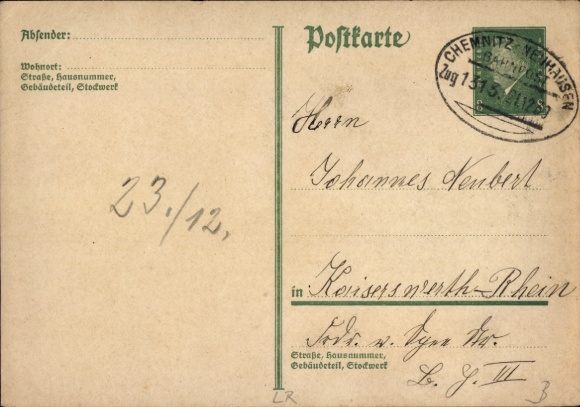 Absender:
Wohnort:
Straße, Hausnummer,
Gebäudeteil, Stockwerk
Postkarte
CHEMNITZ-NEUHAUSEN
BAHNPOST
Zug 1515
8
Herrn
Johannes Neubert
in Kaiserswerth-Rhein
v. Spee Str.
Straße, Hausnummer,
Gebäudeteil, Stockwerk
III
23./12.
LR